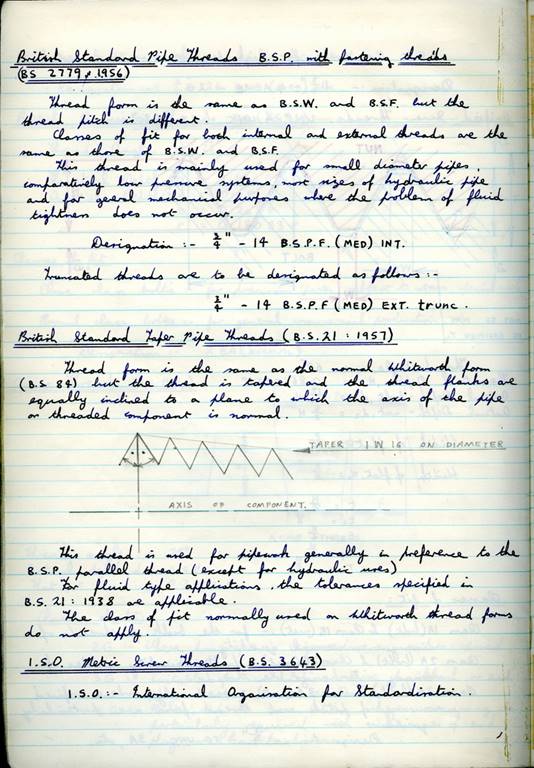 British Standard Pipe Threads B.S.P. with fastening threads
(BS 2779 : 1956)
Thread form is the same as B.S.W. and B.S.F. but the
thread pitch is different.
Classes of fit for both internal and external threads are the
same as those of B.S.W. and B.S.F.
This thread is mainly used for small diameter pipes,
comparatively low pressure systems, most sizes of hydraulic pipe
and for geeral mechanical purposes where the problem of fluid
tightness does not occur.
Designation :- 3/4" - 14 B.S.P.F. (MED) INT.
Truncated threads are to be designated as follows :-
3/4" - 14 B.S.P.F (MED) EXT. trunc.
British Standard Taper Pipe Threads (B.S. 21 : 1957)
Thread form is the same as the normal Whitworth form
(B.S 84) but the thread is tapered and the thread flanks are
equally inclined to a plane to which the axis of the pipe
or threaded component is normal.
TAPER 1 IN 16 ON DIAMETER
AXIS OF COMPONENT.
This thread is used for pipework generally in preference to the
B.S.P. parallel thread (except for hydraulic uses)
For fluid type applications, the tolerances specified in
B.S. 21 : 1938 are applicable.
The class of fit normally used on Whitworth thread forms
do not apply.
I.S.O. Metric Screw Threads (B.S. 3643)
I.S.O. :- International Organisation for Standardisation.